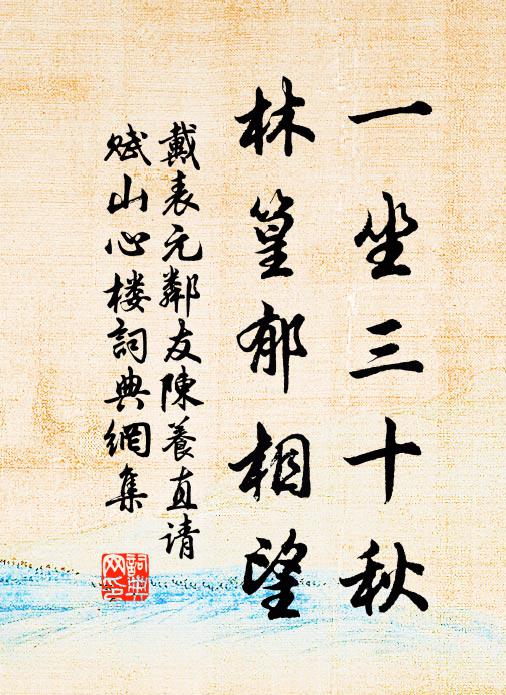 一坐三十秋
林篁郁相望
戴表元鄰友陳養直请
赋山心楼詞典網集
詞典网印